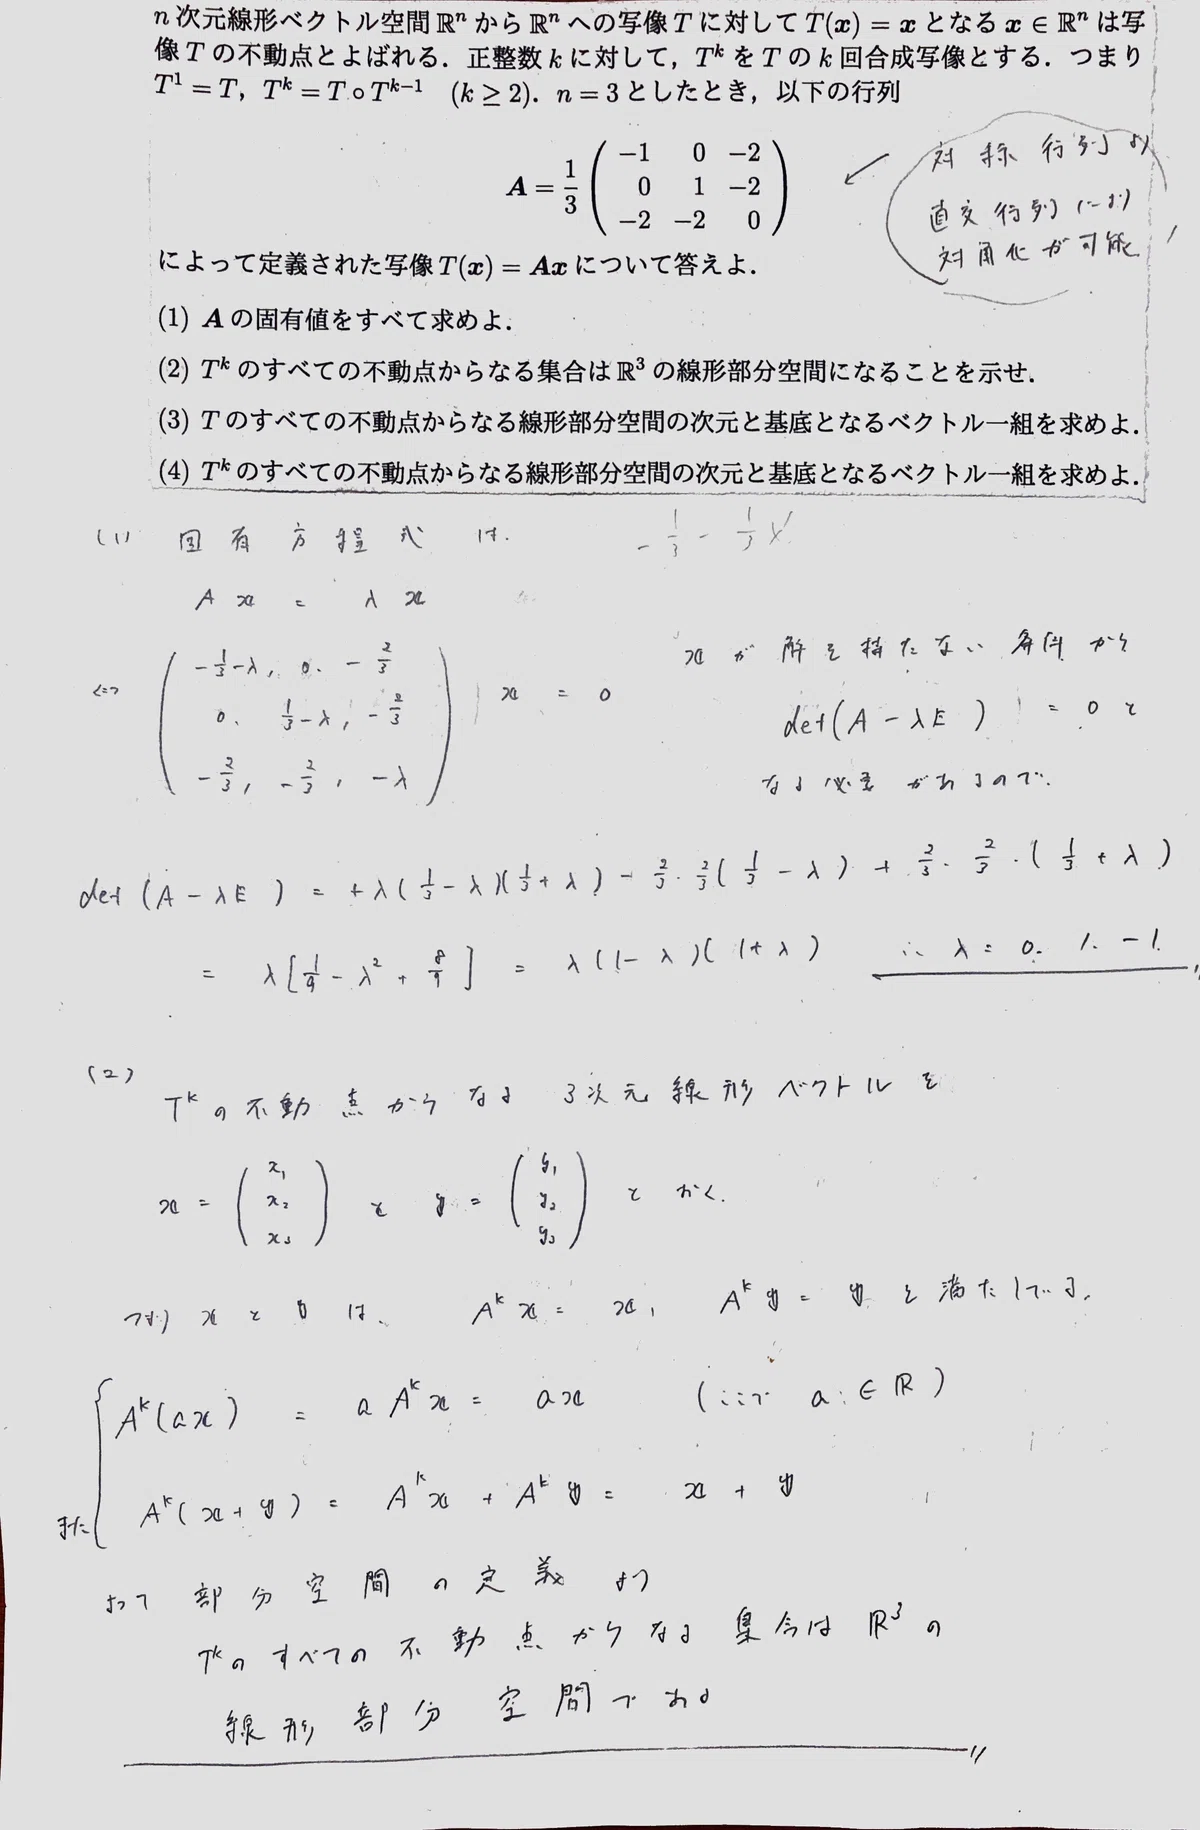 n 次元線形ベクトル空間 ℝⁿ から ℝⁿ への写像 T に対して T(x) = x となる x ∈ ℝⁿ は写
像 T の不動点とよばれる．正整数 k に対して，Tᵏ を T の k 回合成写像とする．つまり
T¹ = T，Tᵏ = T∘Tᵏ⁻¹ (k ≥ 2)．n = 3 としたとき，以下の行列
A = 1/3 ( −1 0 −2
0 1 −2
−2 −2 0 )
対称行列より
直交行列により
対角化が可能
によって定義された写像 T(x) = Ax について答えよ．
(1) A の固有値をすべて求めよ．
(2) Tᵏ のすべての不動点からなる集合は ℝ³ の線形部分空間になることを示せ．
(3) T のすべての不動点からなる線形部分空間の次元と基底となるベクトル一組を求めよ．
(4) Tᵏ のすべての不動点からなる線形部分空間の次元と基底となるベクトル一組を求めよ．
(1) 固有方程式は．
Ax = λx
⇔ ( −1/3−λ, 0. −2/3
0. 1/3−λ, −2/3
−2/3, −2/3, −λ ) x = 0
x が解を持たない条件から
det(A − λE) = 0 と
なる必要があるので．
det(A − λE) = +λ(1/3 − λ)(1/3 + λ) − 2/3・2/3(1/3 − λ) + 2/3・2/3・(1/3 + λ)
= λ[1/9 − λ² + 8/9] = λ(1 − λ)(1 + λ) ∴ λ = 0. 1. −1.
(2)
Tᵏ の不動点からなる 3次元線形ベクトルを
x = ( x₁ x₂ x₃ ) と y = ( y₁ y₂ y₃ ) とおく．
つまり x と y は、 Aᵏx = x, Aᵏy = y を満たしている．
Aᵏ(ax) = aAᵏx = ax (ここで a : ∈ ℝ)
また Aᵏ(x + y) = Aᵏx + Aᵏy = x + y
よって 部分空間の定義より
Tᵏ のすべての不動点からなる集合は ℝ³ の
線形部分空間である